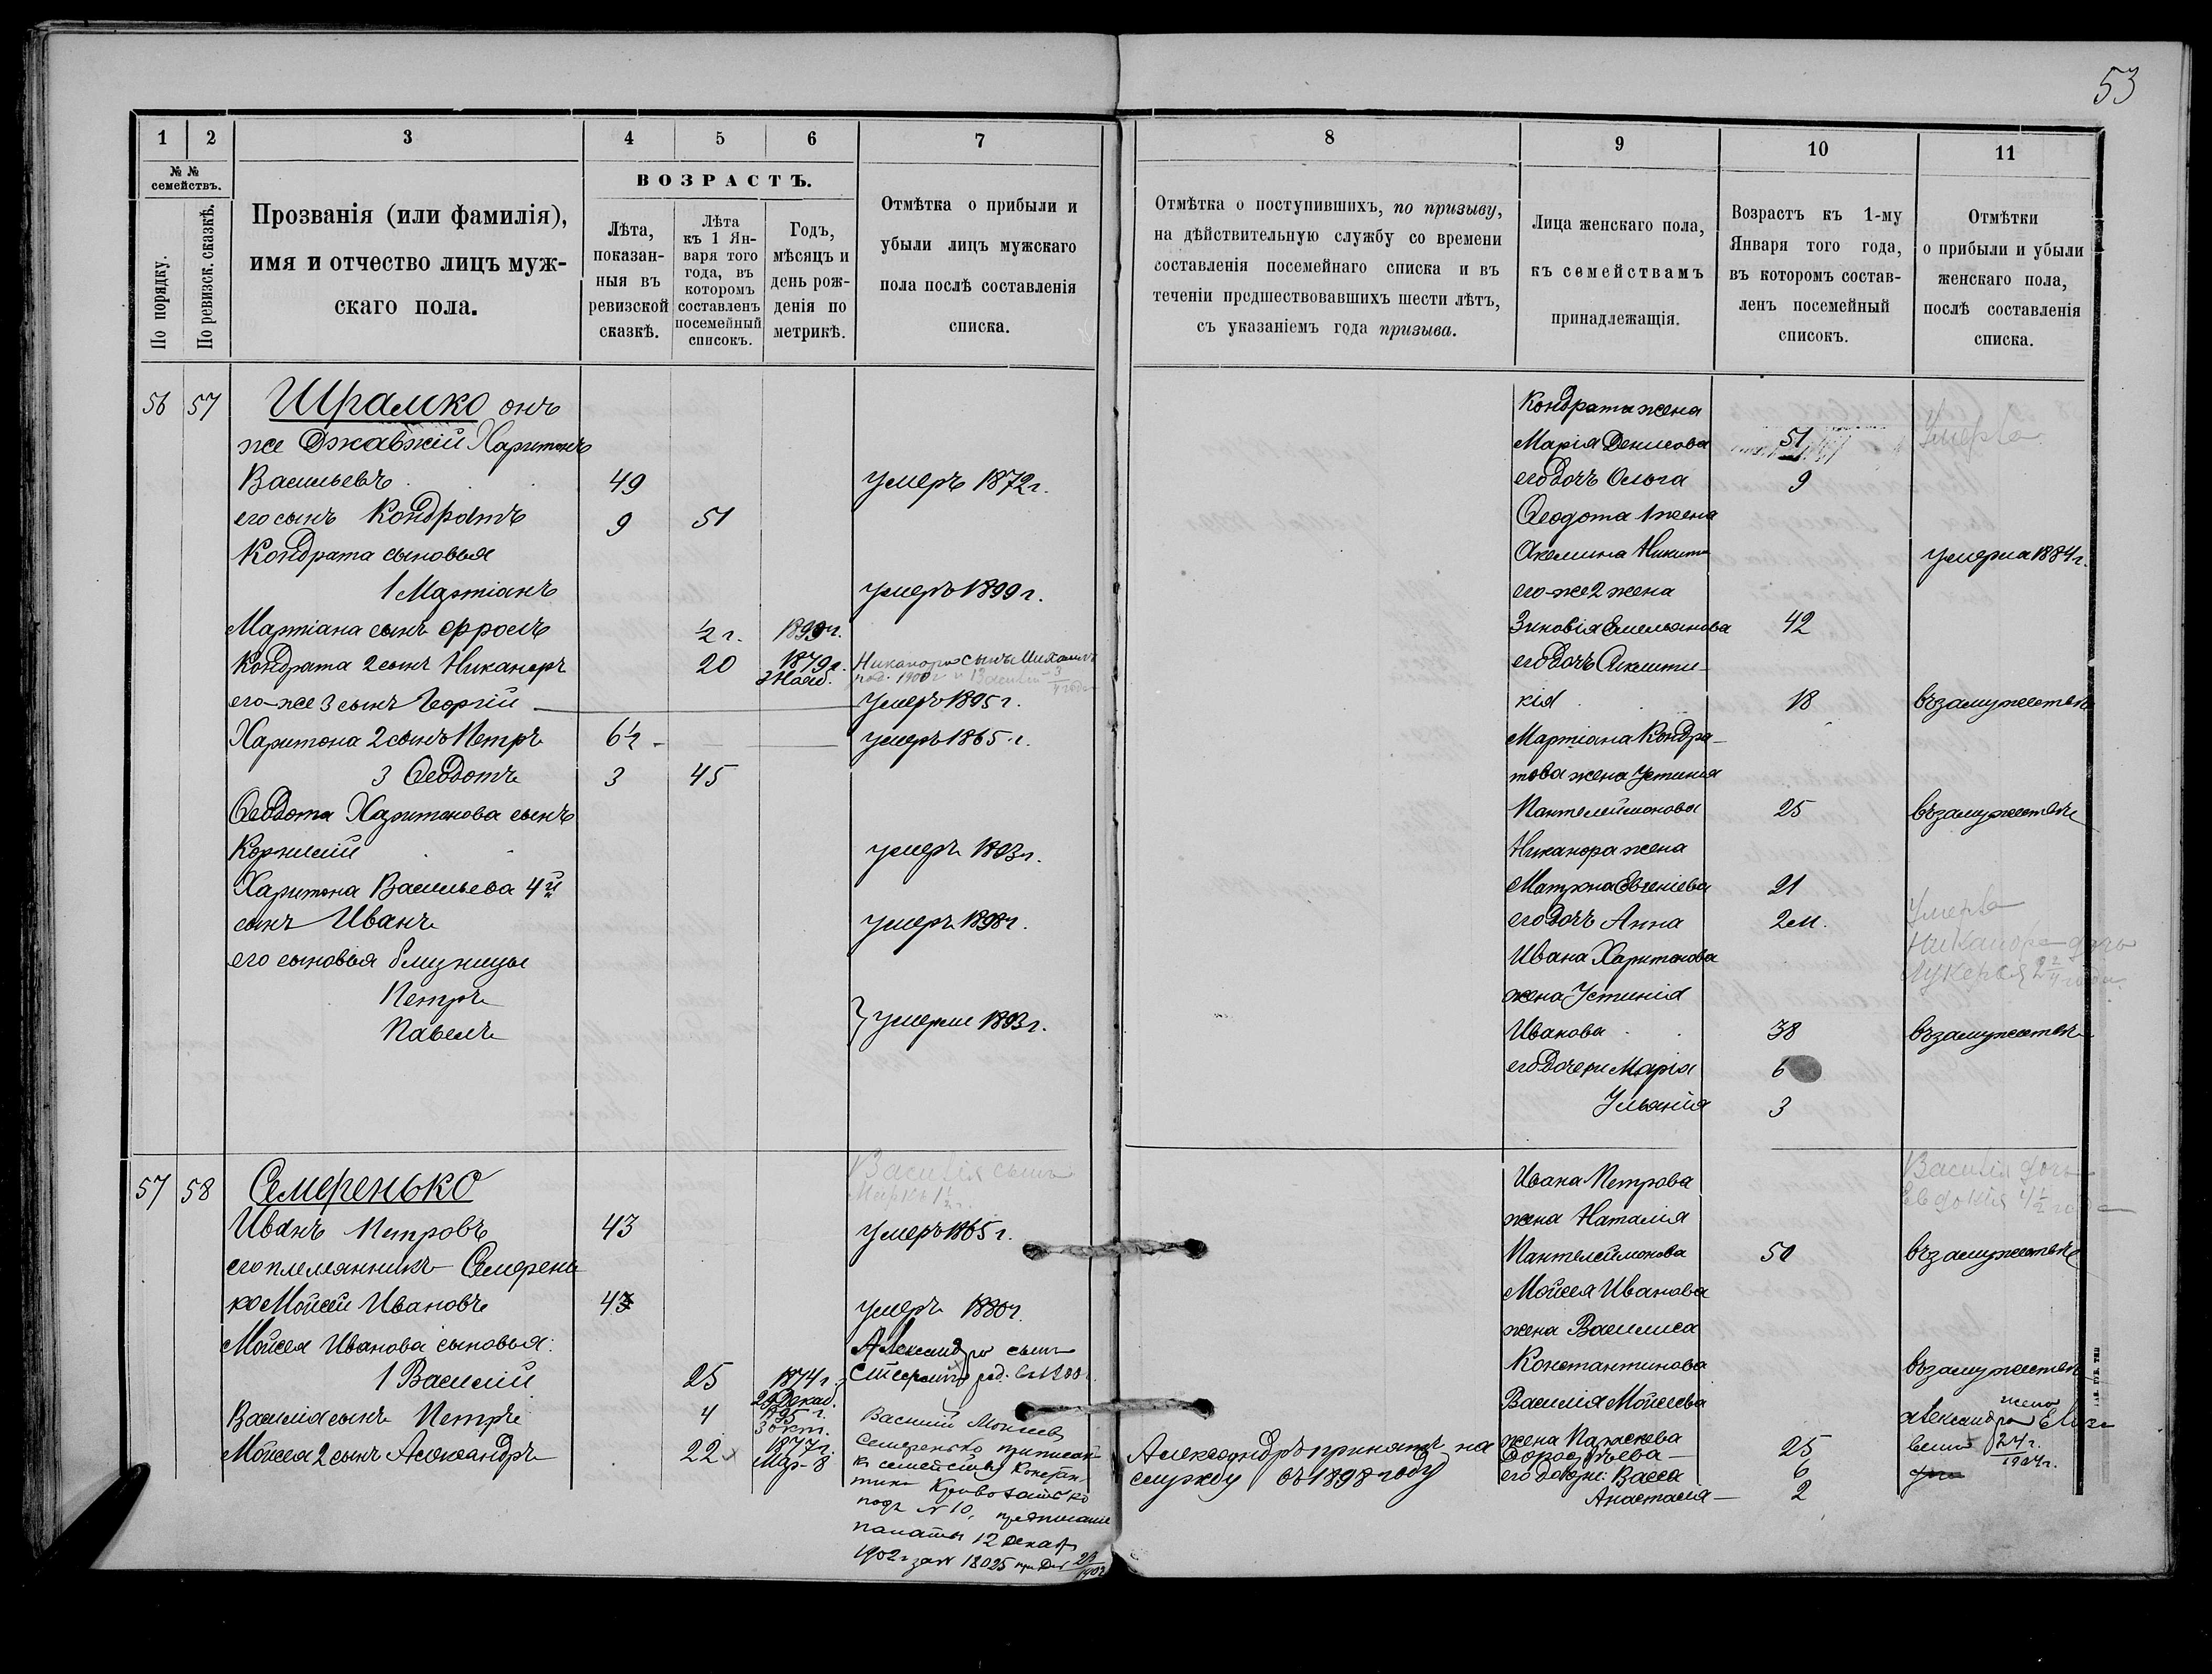 53
1 2 3 4 5 6 7 8 9 10 11
№ №
семействъ.
По порядку.
По ревизск. сказкѣ.
Прозванія (или фамилія),
имя и отчество лицъ муж-
скаго пола.
ВОЗРАСТЪ.
Лѣта,
показан-
ныя въ
ревизской
сказкѣ.
Лѣта
къ 1 Ян-
варя того
года, въ
которомъ
составленъ
посемейный
списокъ.
Годъ,
мѣсяцъ и
день рож-
денія по
метрикѣ.
Отмѣтка о прибыли и
убыли лицъ мужскаго
пола послѣ составленія
списка.
Отмѣтка о поступившихъ, по призыву,
на дѣйствительную службу со времени
составленія посемейнаго списка и въ
теченіи предшествовавшихъ шести лѣтъ,
съ указаніемъ года призыва.
Лица женскаго пола,
къ семействамъ
принадлежащія.
Возрастъ къ 1-му
Января того года,
въ которомъ состав-
ленъ посемейный
списокъ.
Отмѣтки
о прибыли и убыли
женскаго пола,
послѣ составленія
списка.
56 57 Шрамко онъ
же Харитонъ
Васильевъ 49 умеръ 1872 г.
его сынъ Кондратъ 9 51
Кондрата сыновья
1 Мартіанъ умеръ 1899 г.
Мартіана сынъ Фролъ ½ г. 1899 г.
Кондрата 2 сынъ Никаноръ 20 1879 г. Никанора сынъ Михаилъ
2 Нояб. род. 1900 г. и
его-же 3 сынъ Георгій умеръ 1895 г.
Харитона 2 сынъ Петръ 6½ умеръ 1865 г.
3 Ѳеодотъ 3 45
Ѳеодота Харитонова сынъ
Корнилій умеръ 1893 г.
Харитона Васильева 4й
сынъ Иванъ умеръ 1898 г.
его сыновья близнецы
Петръ
Павелъ } умерли 1893 г.
Кондрата жена
Марія Денисова 51 Умерла
его дочь Ольга 9
Ѳеодота 1 жена
Акелина Никит умерла 1884 г.
его-же 2 жена
Зиновія Емельянова 42
его дочь
кія 18 въ замужествѣ
Мартіана Кондра-
това жена Устинія
Пантелеймонова 25 въ замужествѣ
Никанора жена
Матрона Евгеніева 21
его дочь Анна 2 м. Умерла
Никанора дочь
Лукерья
Ивана Харитонова
жена Устинія
Иванова 38 въ замужествѣ
его дочери Марія 6
Ульянія 3
57 58 Семеренько
Василія сынъ
Марко 1½ г.
Иванъ Петровъ 43 умеръ 1865 г.
его племянникъ Семерень
ко Мойсей Ивановъ 43 умеръ 1880 г.
Мойсея Иванова сыновья:
1 Василій 25 1874 г.
Декаб.
Василія сынъ Петръ 4 1895 г.
3 Окт.
Мойсея 2 сынъ Александръ 22 1877 г.
Мар. 8
Александра сынъ
род. въ 1900 г.
Василій Моисеев
Семеренько приписан
къ семейству Констан-
тина
подъ № 10,
палаты 12 декаб
1902 г за № 18025
Александръ принятъ на
службу въ 1898 году
Ивана Петрова
жена Наталія
Пантелеймонова 50 въ замужествѣ
Василія дочь
Евдокія 4½ года
Мойсея Иванова
жена Василиса
Константинова въ замужествѣ
Василія Мойсеева
жена Параскева
25
его дочери: Васса 6
Анастасія 2
жена
Александра
24 г.
1904 г.